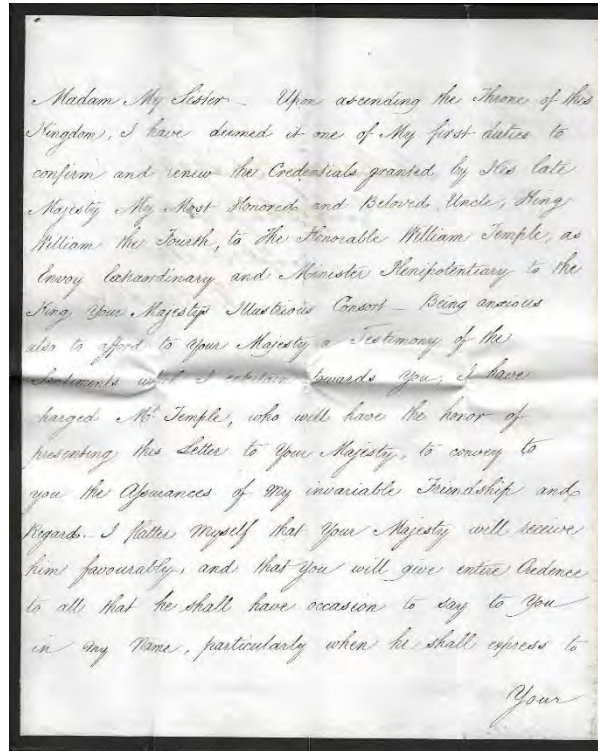 Madam My Sister _ Upon ascending the Throne of this
Kingdom, I have deemed it one of My first duties to
confirm and renew the Credentials granted by His late
Majesty My Most Honored and Beloved Uncle, King
William the Fourth, to The Honorable William Temple, as
Envoy Extraordinary and Minister Plenipotentiary to the
King Your Majesty's Illustrious Consort _ Being anxious
also to afford to Your Majesty a Testimony of the
Sentiments which I entertain towards You, I have
harged Mr Temple, who will have the honor of
presenting this Letter to Your Majesty, to convey to
you the Assurances of My invariable Friendship and
Regard. _ I flatter Myself that Your Majesty will receive
him favourably, and that You will give entire Credence
to all that he shall have occasion to say to You
in My Name, particularly when he shall express to
Your